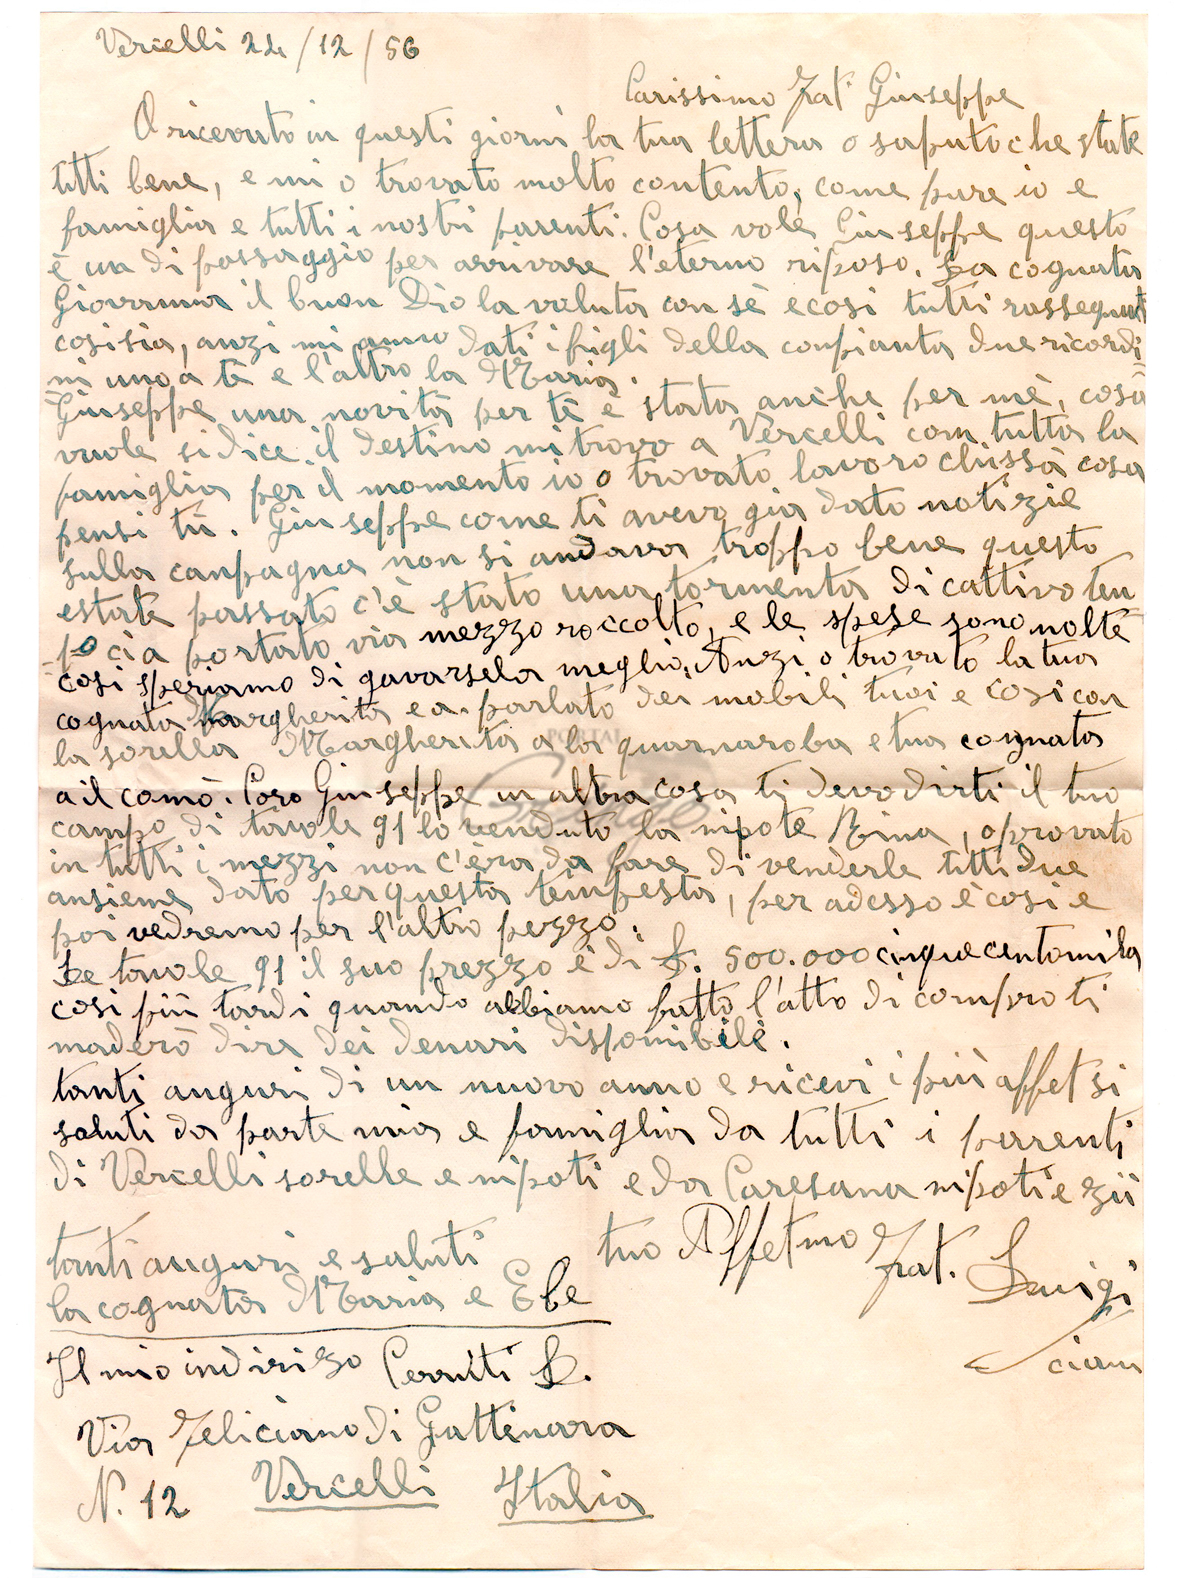 Vercelli 24/12/56
Carissimo Frat. Giuseppe
O ricevuto in questi giorni la tua lettera o saputo che state
tutti bene, e mi o trovato molto contento, come pure io e
famiglia e tutti i nostri parenti. Cosa vole Giuseppe questo
è un di passaggio per arrivare l'eterno riposo. La cognata
Giovanna il buon Dio la voluta con sè e cosi tutti
cosi sia, anzi mi anno dati i figli della conpianta due ricordi
ni uno a te e l'altro la Maria.
Giuseppe una novità per tè è stata anche per mè, cosa
vuole si dice il destino mi trovo a Vercelli com tutta la
famiglia per il momento io o trovato lavoro chissà cosa
pensi tù. Giuseppe come ti avevo già dato notizie
sulla canpagna non si andava troppo bene questo
estate passato c'è stato una tormenta di cattivo ten
po ci a portato via mezzo roccolto, e le spese sono molte
cosi speriamo di gavarsela meglio. Anzi o trovato la tua
cognata Margherita e a parlato dei mobili tuoi e cosi con
la sorella Margherita a la quarnaroba e tua cognata
a il comò. Caro Giuseppe un altra cosa ti devo dirti il tuo
campo di tavole 91 lo venduto la nipote Rina, o provato
in tutti i mezzi non c'èra da fare di venderle tutti due
ansieme dato per questa tempesta, per adesso è cosi e
poi vedremo per l'altro pezzo.
Le tavole 91 il suo prezzo è di £. 500.000 cinquecentomila
cosi più tardi quando abbiamo fatto l'atto di compro ti
maderò dira dei denari disponibili.
tanti auguri di un nuovo anno e ricevi i più affet si
saluti da parte mia e famiglia da tutti i parrenti
di Vercelli sorelle e nipoti e da Caresana nipoti e zii
tuo Affetmo Frat. Luigi
Sciau
tanti auguri e saluti
la cognata Maria e Ebe
Il mio indirizo Cerruti L.
Via Feliciano di Gattinara
N. 12 Vercelli Italia